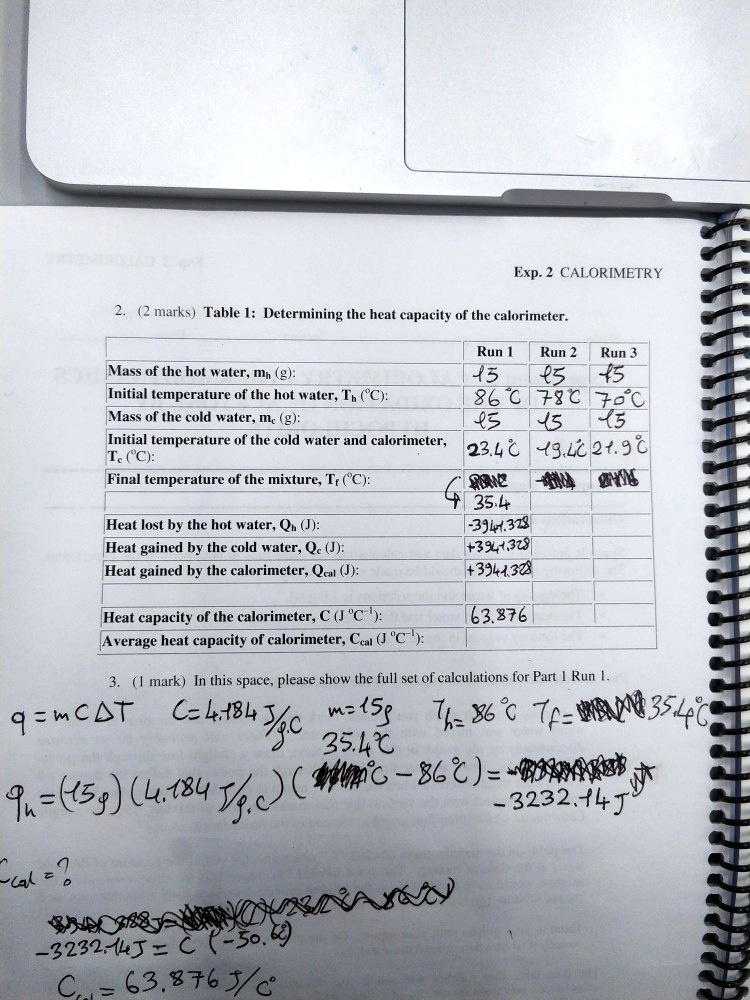 Exp. 2 CALORIMETRY
2. (2 marks) Table 1: Determining the heat capacity of the calorimeter.
Run 1 Run 2 Run 3
Mass of the hot water, mh (g): 15 15 15
Initial temperature of the hot water, Th (°C): 86°C 78°C 70°C
Mass of the cold water, mc (g): 15 15 15
Initial temperature of the cold water and calorimeter, 23.4°C 19.4°C 21.9°C
Tc (°C):
Final temperature of the mixture, Tf (°C):
35.4
Heat lost by the hot water, Qh (J): -3941.328
Heat gained by the cold water, Qc (J): +3941.328
Heat gained by the calorimeter, Qcal (J): +3941.328
Heat capacity of the calorimeter, C (J °C⁻¹): 63.876
Average heat capacity of calorimeter, Ccal (J °C⁻¹):
3. (1 mark) In this space, please show the full set of calculations for Part 1 Run 1.
q = mCΔT C = 4.184 J/g.C m = 15g Th = 86°C Tf = 35.4°C
35.4°C
qh = (15g) (4.184 J/g.C) ( °C - 86°C) =
-3232.14 J
Ccal = ?
-3232.14J = C (-50.6°)
Ccal = 63.876 J/C°